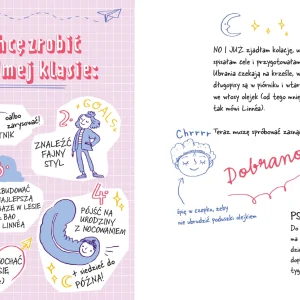 chcę zrobić
mej klasie:
albo
zarysować!
TNIK
2.
GOALS:
ZNALEŹĆ
FAJNY
STYL
ZBUDOWAĆ
NAJLEPSZĄ
BAZĘ W LESIE
BAO
LINNÉĄ
4.
PÓJŚĆ NA
URODZINY
Z NOCOWANIEM
+ siedzieć do
PÓŹNA!
OCHAĆ
SIĘ
NO I JUŻ zjadłam kolację, w
spisałam cele i przygotowałam
Ubrania czekają na krześle, w
długopisy są w piórniku i wtar
we włosy olejek (od tego mnie
tak mówi Linnéa).
Chrrrr
Teraz muszę spróbować zasną
Dobrano
śpię w czepku, żeby
nie ubrudzić poduszki olejkiem
PS
Do
ma
dzie
dop
typ